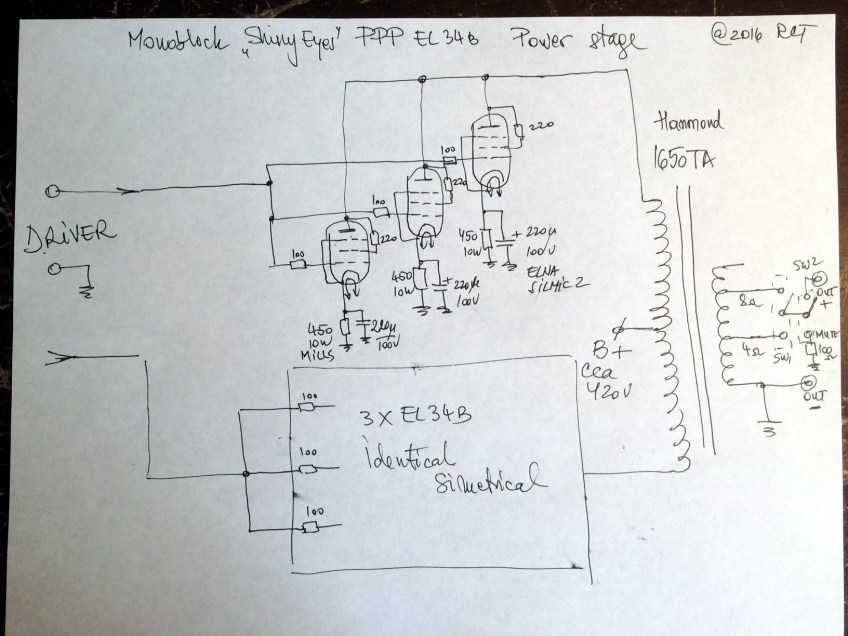 Monoblock „Shiny Eyes" PPP EL34B Power stage @2016 RCT
Hammond
1650TA
DRIVER
100
220
100
220
100
220
450
10W
+ 220µ
100V
ELNA
SILMIC 2
450
10W
+ 220µ
100V
450
10W
MILLS
220µ
100V
B+
cca
420V
SW2
OUT
+
8Ω
4Ω
SW1
MUTE
10Ω
OUT
-
100
100
100
3x EL34B
identical
simetrical